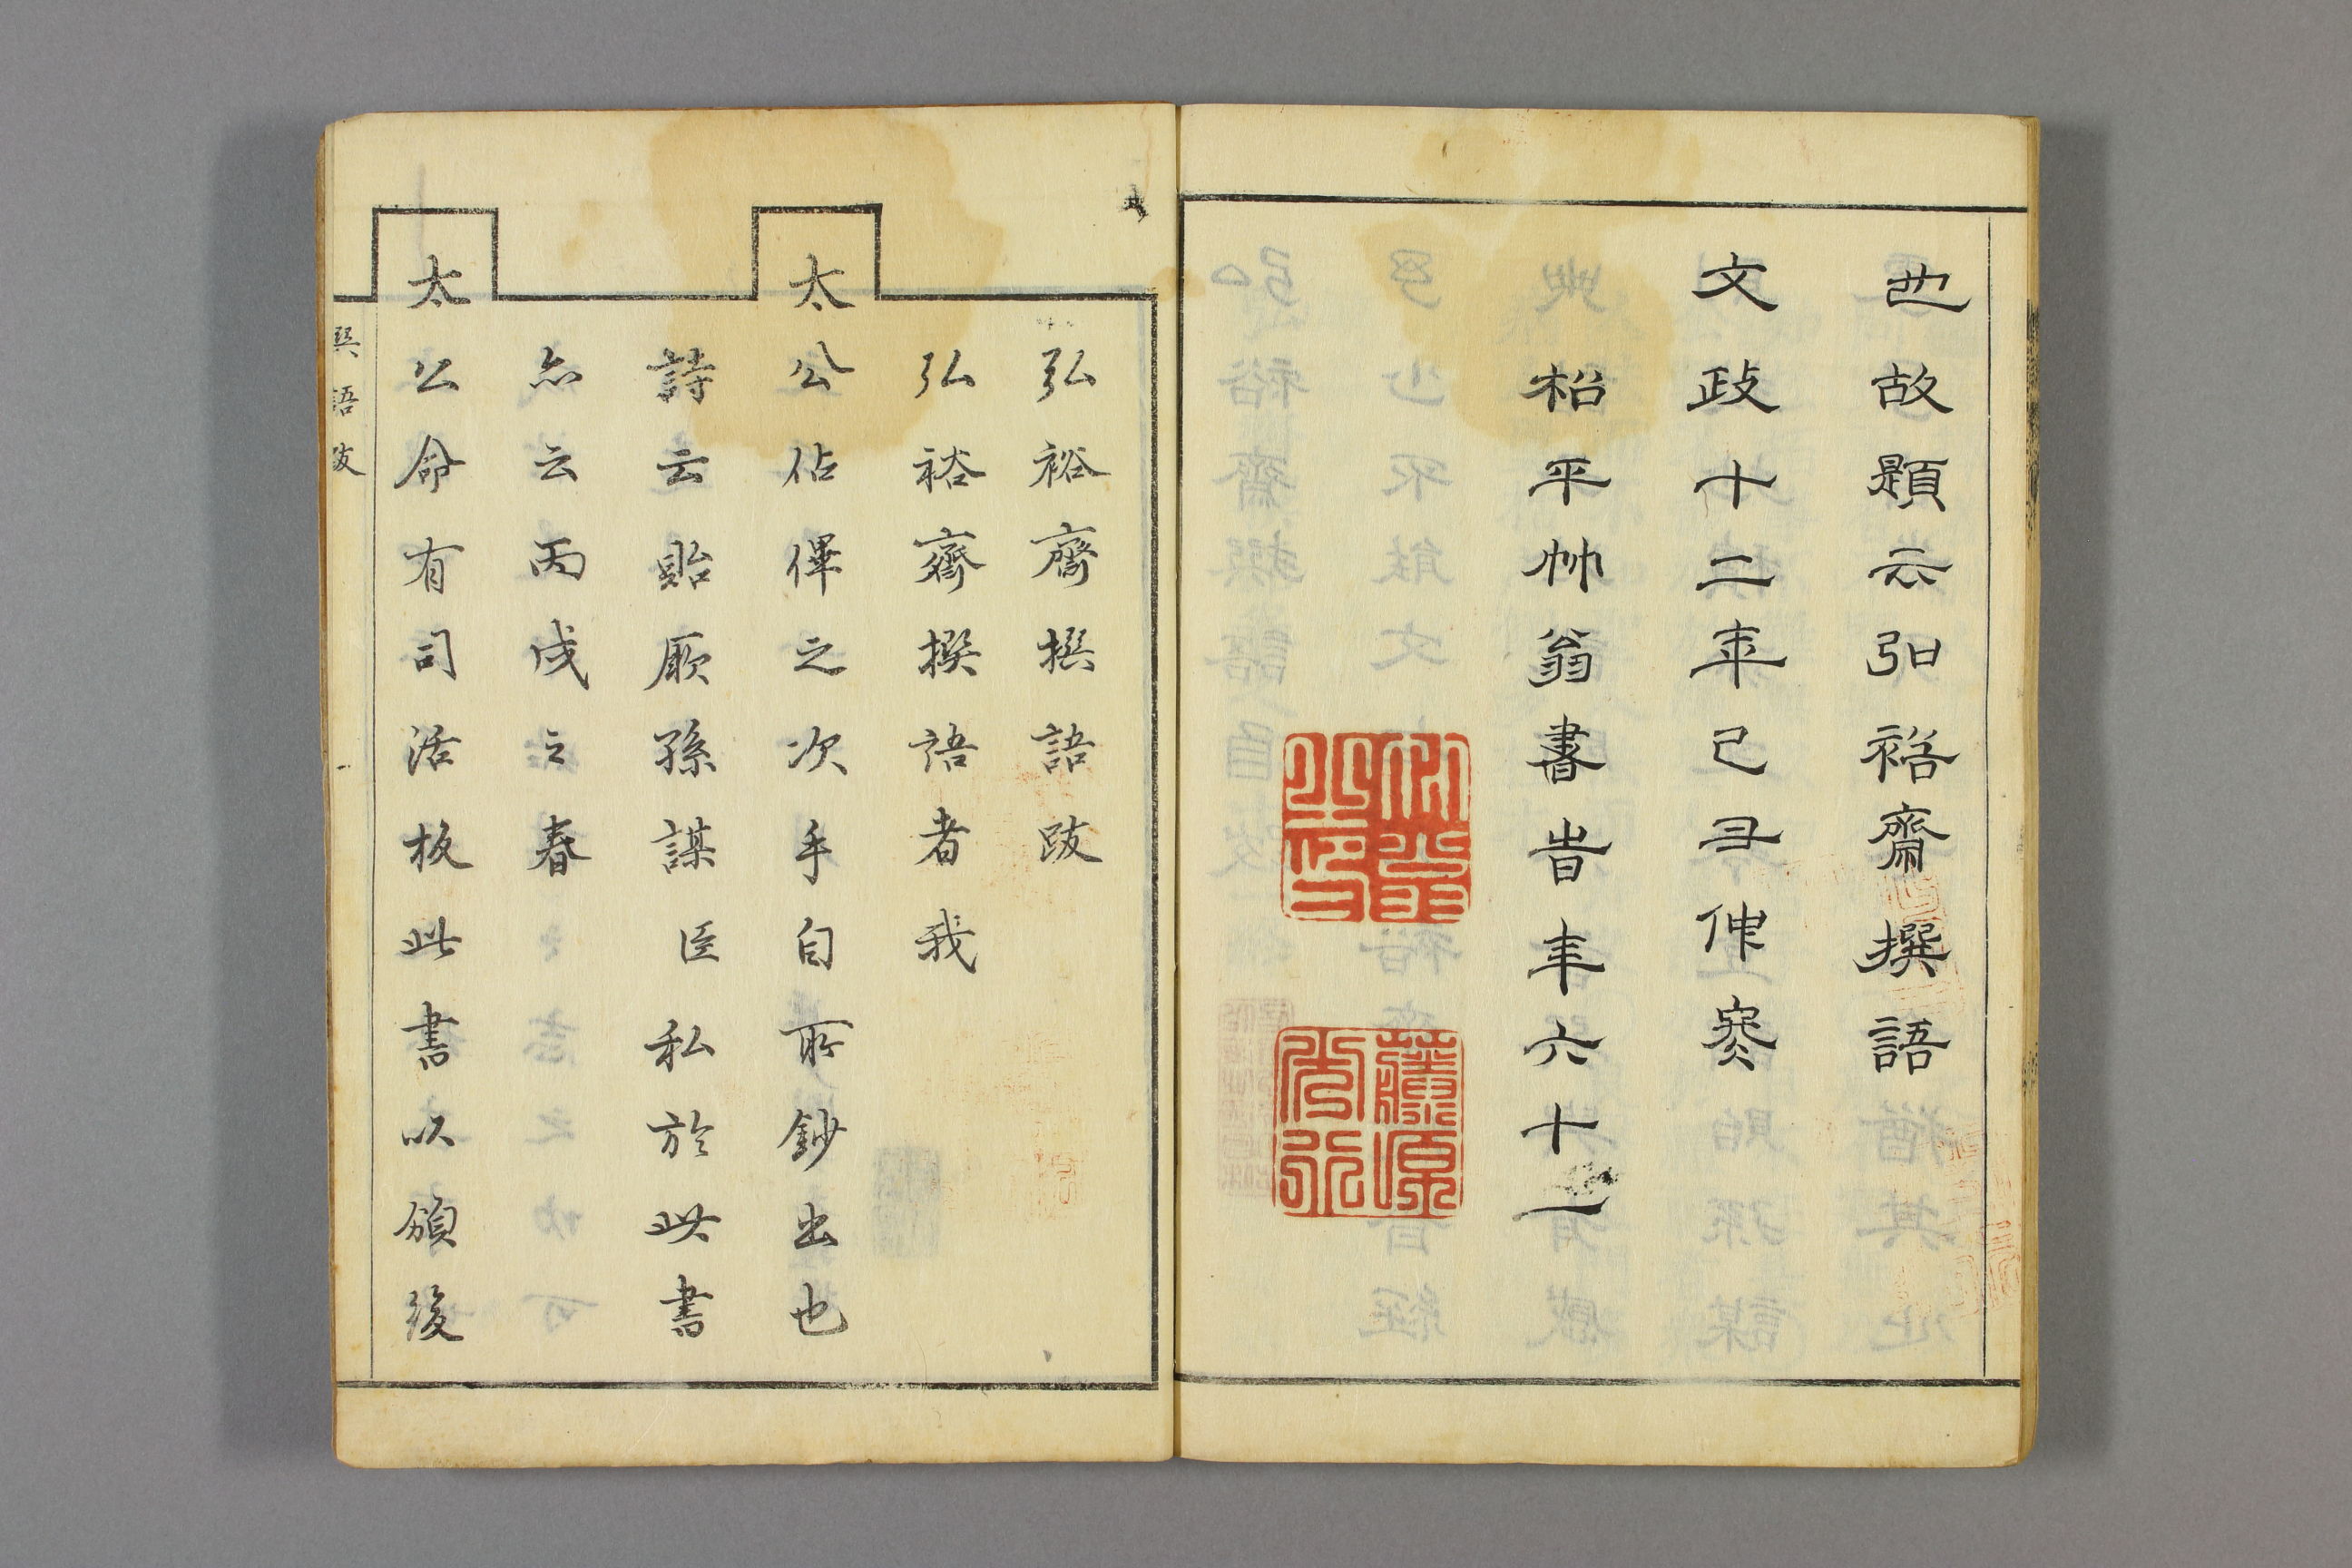 也故題云弘裕齋撰語
文政十二年己丑仲冬
松平冲翁書昔年六十一
藤原
弘裕齋撰語跋
弘裕齋撰語者我
太公佔俾之次手自所鈔出也
詩云貽厥孫謀臣私於此書
亦云丙戌之春
太公命有司活板此書以頒後
撰語跋